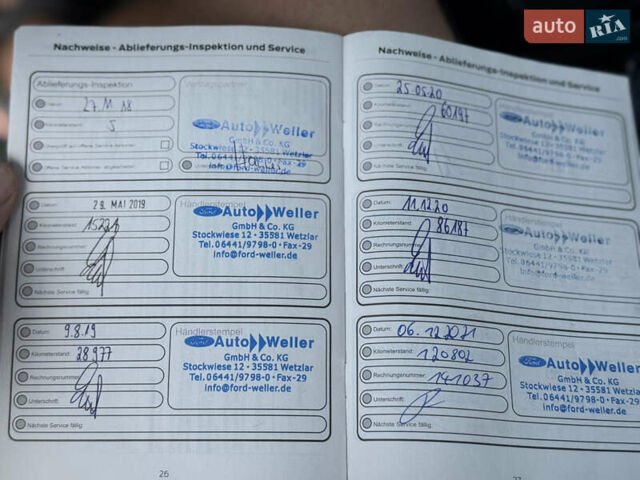 auto RIA.com
Nachweise - Ablieferungs-Inspektion und Service
Ablieferungs-Inspektion
Vertragspartner
Datum: 27 11 18
Kilometerstand: 5
Ford Auto Weller
GmbH & Co. KG
Stockwiese 12 · 35581 Wetzlar
Tel. 06441/9798-0 · Fax -29
info@ford-weller.de
Datum: 29. MAI 2019
Händlerstempel
Kilometerstand:
Rechnungsnummer:
Unterschrift:
Nächste Service fällig:
Ford Auto Weller
GmbH & Co. KG
Stockwiese 12 · 35581 Wetzlar
Tel. 06441/9798-0 · Fax -29
info@ford-weller.de
Datum: 9.8.19
Händlerstempel
Kilometerstand: 28977
Rechnungsnummer:
Unterschrift:
Nächste Service fällig:
Ford Auto Weller
GmbH & Co. KG
Stockwiese 12 · 35581 Wetzlar
Tel. 06441/9798-0 · Fax -29
info@ford-weller.de
26
Nachweise - Ablieferungs-Inspektion und Service
Datum: 25.05.20
Kilometerstand: 60197
Rechnungsnummer:
Unterschrift:
Nächste Service fällig:
Ford Auto Weller
GmbH & Co. KG
Stockwiese 12 · 35581 Wetzlar
Tel. 06441/9798-0 · Fax -29
info@ford-weller.de
Datum: 11.12.20
Händlerstempel
Kilometerstand: 86187
Rechnungsnummer:
Unterschrift:
Nächste Service fällig:
Ford Auto Weller
GmbH & Co. KG
Stockwiese 12 · 35581 Wetzlar
Tel. 06441/9798-0 · Fax -29
info@ford-weller.de
Datum: 06.12.2021
Händlerstempel
Kilometerstand: 120802
Rechnungsnummer: 141037
Unterschrift:
Nächste Service fällig:
Ford Auto Weller
GmbH & Co. KG
Stockwiese 12 · 35581 Wetzlar
Tel. 06441/9798-0 · Fax -29
info@ford-weller.de